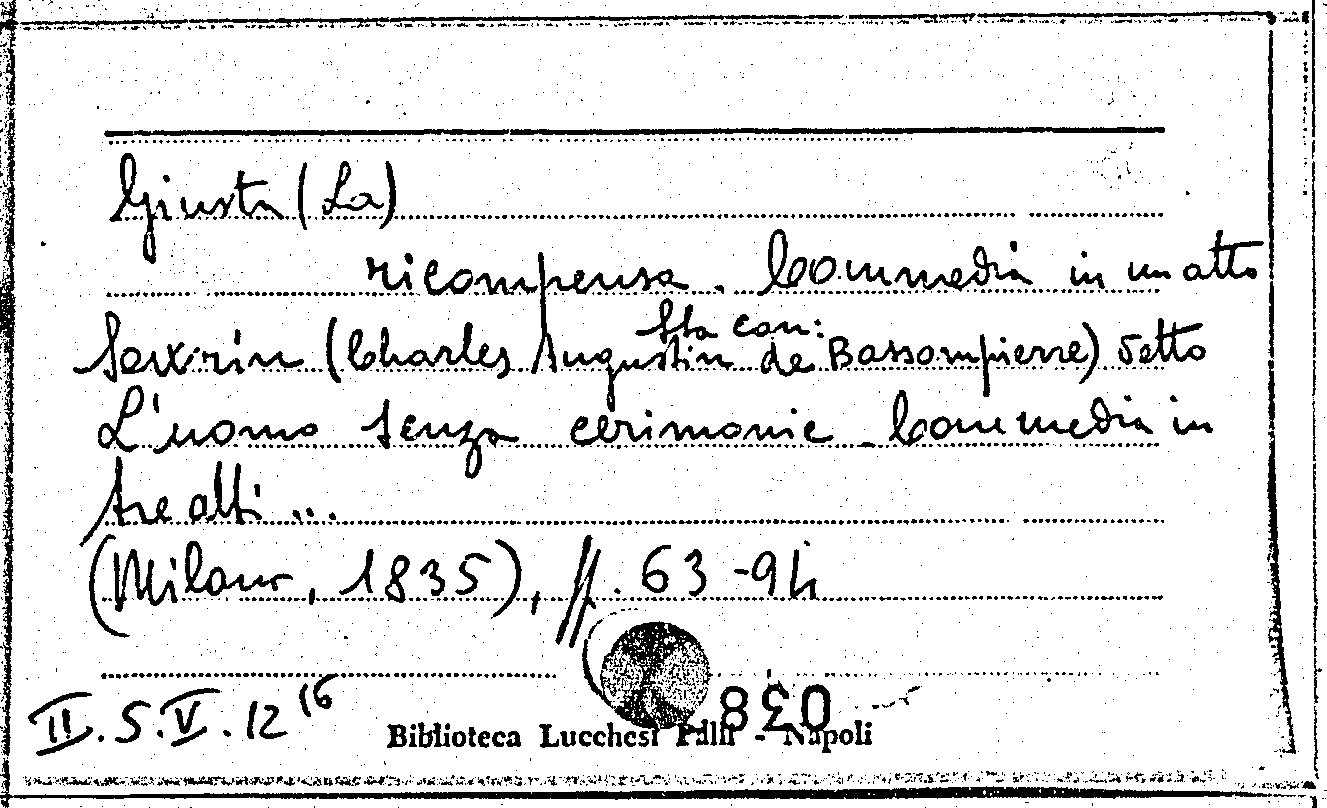 Giusta (La)
ricompensa. Commedia in un atto
Sta con:
Sevrin (Charles Augustin de Bassompierre) detto
L'uomo senza cerimonie. Commedia in
tre atti ...
(Milano, 1835), pp. 63-94
II.5.V.12 16
Biblioteca Lucchesi Palli - Napoli